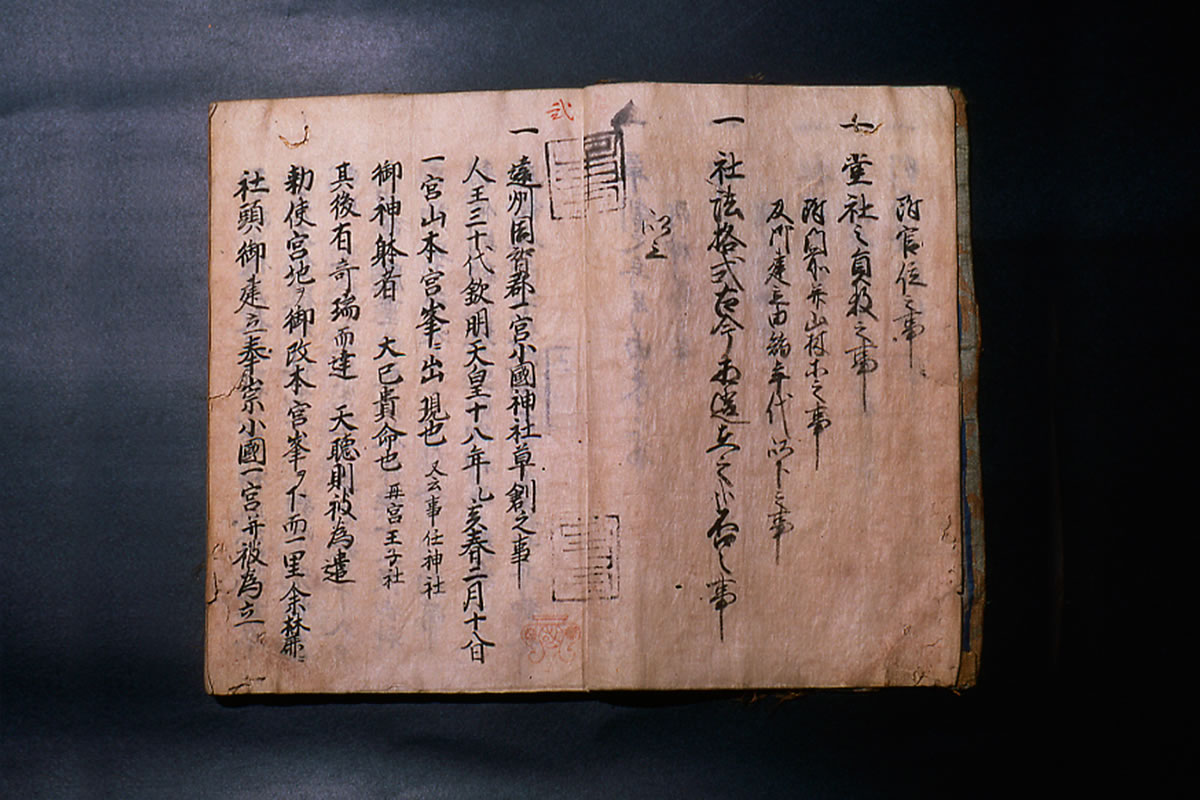 附官位之事
一 堂社之員数之事
附門前并山林等之事
及所建立由緒年代以下之事
一 社法格式古今相違有之哉否之事
以上
弐
一 遠州周智郡一宮小國神社草創之事
人王三十代欽明天皇十八年乙亥春二月十八日
一宮山本宮峯ニ出現也 又云事任神社
御神躰者 大已貴命也 再宮王子社
其後有奇瑞而達 天聴則被為遣
勅使宮地ヲ御改本宮峯ヲ下而一里余林
社頭御建立奉崇小國一宮并被為立